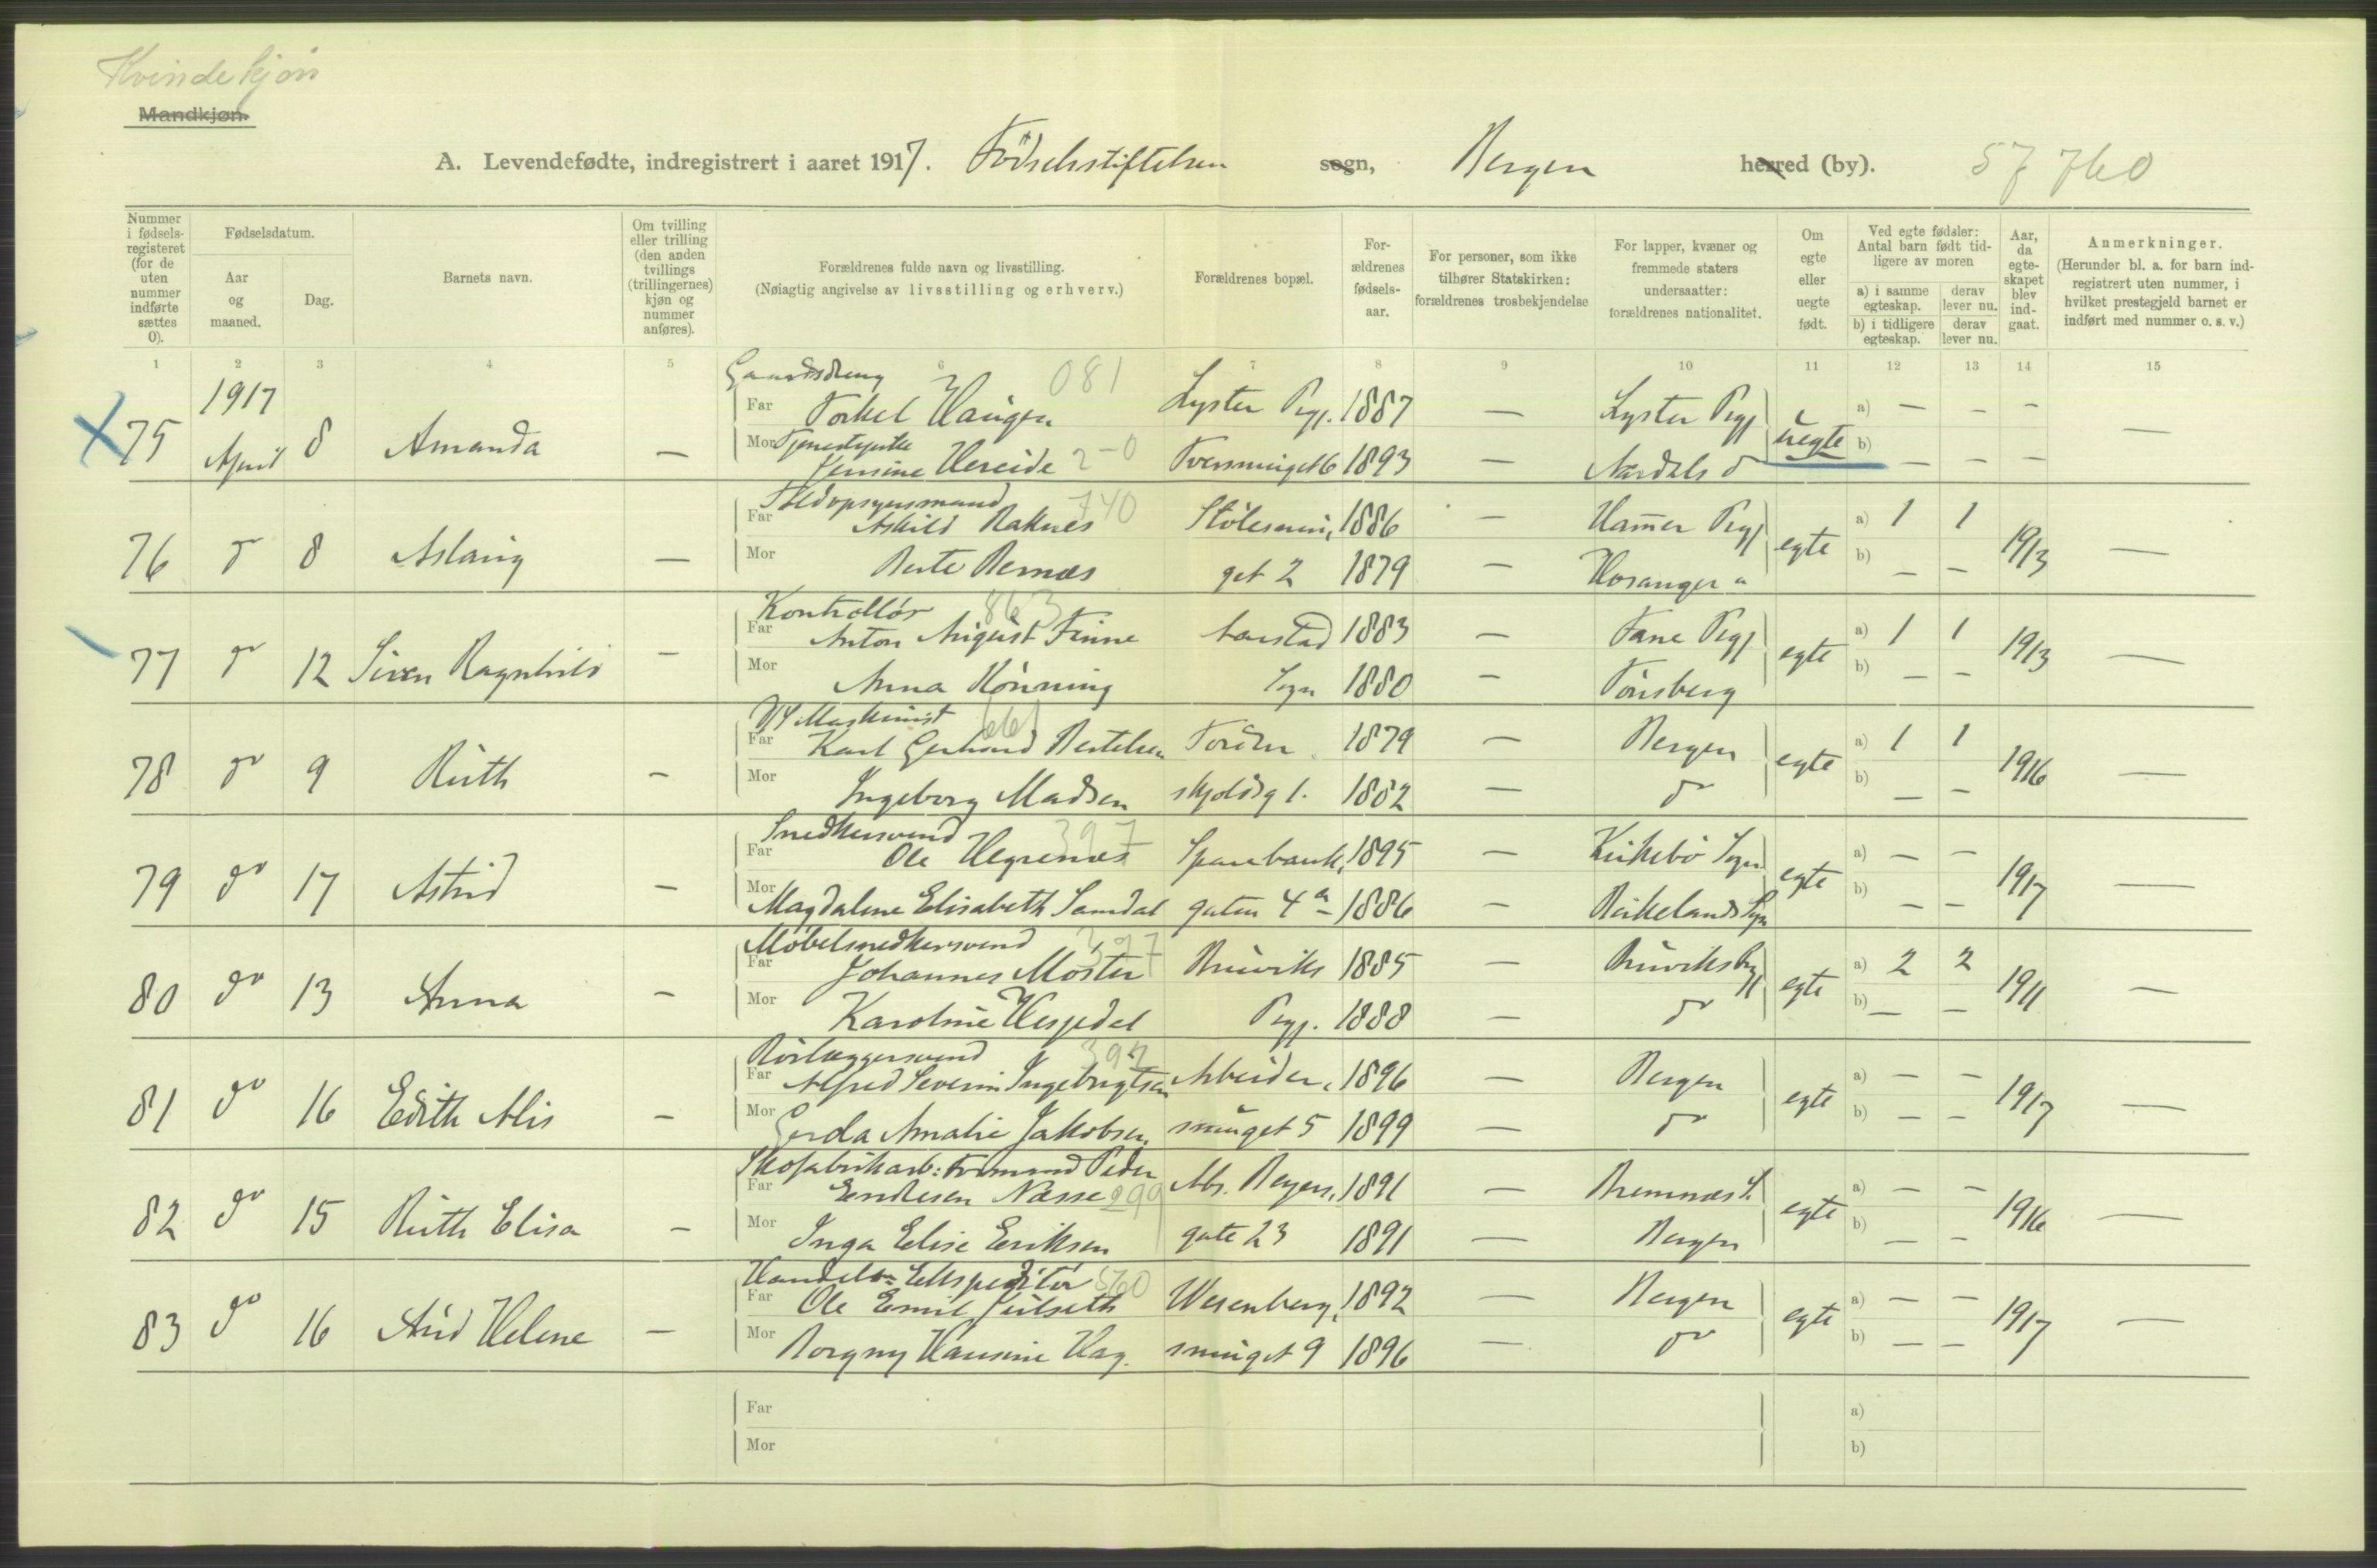 Kvindekjøn
Mandkjøn.
A. Levendefødte, indregistrert i aaret 1917. Fødselsstiftelsen sogn, Bergen herred (by). 57 760
Nummer i fødselsregisteret (for de uten nummer indførte sættes 0).
Fødselsdatum.
Aar og maaned.
Dag.
Barnets navn.
Om tvilling eller trilling (den anden tvillings (trillingernes) kjøn og nummer anføres).
Forældrenes fulde navn og livsstilling.
(Nøiagtig angivelse av livsstilling og erhverv.)
Forældrenes bopæl.
Forældrenes fødselsaar.
For personer, som ikke tilhører Statskirken: forældrenes trosbekjendelse
For lapper, kvæner og fremmede staters undersaatter: forældrenes nationalitet.
Om egte eller uegte født.
Ved egte fødsler: Antal barn født tidligere av moren
a) i samme egteskap. derav lever nu.
b) i tidligere egteskap. derav lever nu.
Aar, da egteskapet blev indgaat.
Anmerkninger.
(Herunder bl. a. for barn indregistrert uten nummer, i hvilket prestegjeld barnet er indført med nummer o. s. v.)
1 2 3 4 5 6 7 8 9 10 11 12 13 14 15
1917
Gaardsdreng 081
Far Torkel Haugen Lyster Pgj. 1887 — Lyster Pgj a) — — —
75 April 8 Amanda — uegte —
Mor Tjenestepike
Jensine Hereide 2-0 Tversmuget 6 1893 — Aardals do b) — — —
Toldopsynsmand 740
Far Askild Raknes Stølesmu, 1886 — Hamer Pgj a) 1 1
76 do 8 Aslaug — egte 1913 —
Mor Berte Bernæs get 2 1879 — Hosanger " b) — —
Kontrollør 863
Far Anton August Finne Aarstad 1883 — Fane Pgj a) 1 1
77 do 12 Siren Ragnhild — egte 1913 —
Mor Anna Rønning Sogn 1880 — Tønsberg b) — —
D/S Maskinist 661
Far Karl Gerhard Bertelsen Torden 1879 — Bergen a) 1 1
78 do 9 Ruth — egte 1916 —
Mor Ingeborg Madsen skjoldsg 1. 1882 — do b) — —
Snedkersvend 397
Far Ole Hegrenæs Sparebank, 1895 — Kirkebø Sogn a) — —
79 do 17 Astrid — egte 1917 —
Mor Magdalene Elisabeth Sandal gaten 4 a 1886 — Birkelands Sgn b) — —
Møbelsnedkersvend 397
Far Johannes Møster Bruviks 1885 — Bruviks Pgj a) 2 2
80 do 13 Anna — egte 1911 —
Mor Karoline Hesjedal Pgj. 1888 — do b) — —
Rørlæggersvend 397
Far Alfred Severin Ingebrigtsen Arbeider, 1896 — Bergen a) — —
81 do 16 Edith Alis — egte 1917 —
Mor Gerda Amalie Jakobsen smuget 5 1899 — do b) — —
Skofabrikarb: Formand Peder
Far Endresen Næsse 299 Abs. Beyers, 1891 — Bremnæs S. a) — —
82 do 15 Ruth Elisa — egte 1916 —
Mor Inga Elise Eriksen gate 23 1891 — Bergen b) — —
Handels- Ekspeditør 560
Far Ole Emil Julseth Wesenberg, 1892 — Bergen a) — —
83 do 16 Aud Helene — egte 1917 —
Mor Borgny Hansine Hag. smuget 9 1896 — do b) — —
Far a)
Mor b)